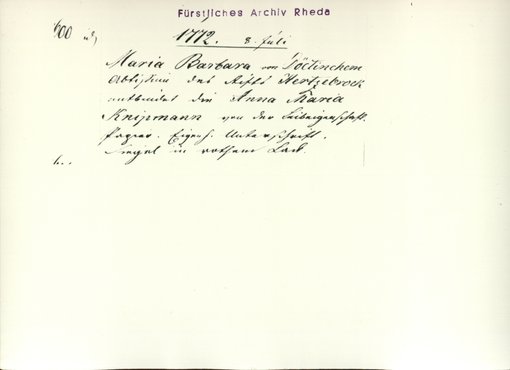 Fürstliches Archiv Rheda
1772. 8. Juli
Maria Barbara von Döetinchem
Abtissin des Stifts Hertzebrock
entbindet die Anna Maria
Knipmann von der Leibeigenschaft.
Papier. Eigenh. Unterschrift.
Siegel in rothem Lack.